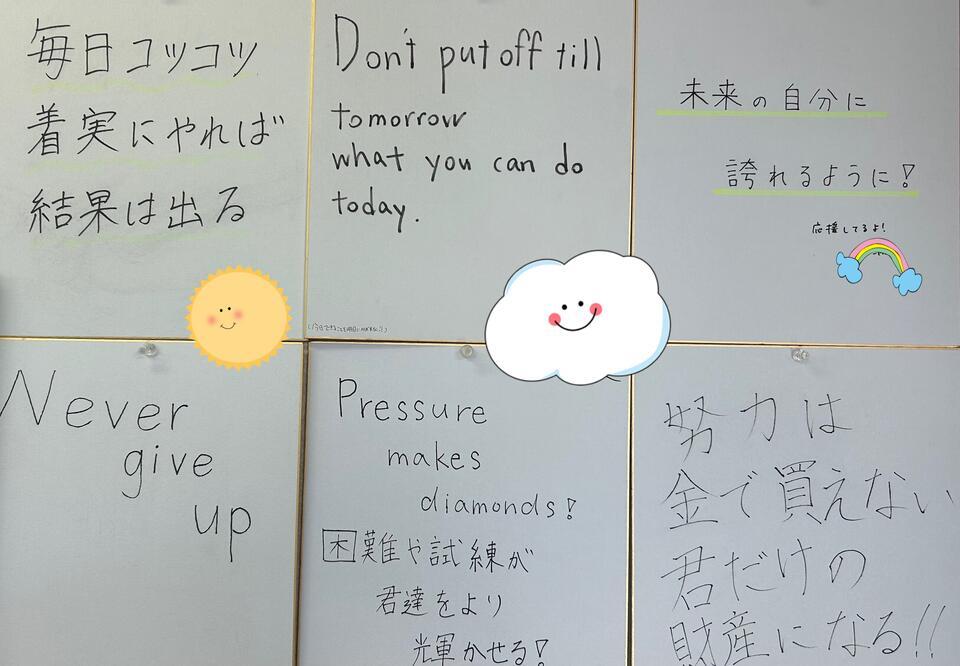 毎日コツコツ
着実にやれば
結果は出る
Don't put off till
tomorrow
what you can do
today.
未来の自分に
誇れるように!
応援してるよ!
Never
give
up
Pressure
makes
diamonds!
困難や試練が
君達をより
輝かせる!
努力は
金で買えない
君だけの
財産になる!!